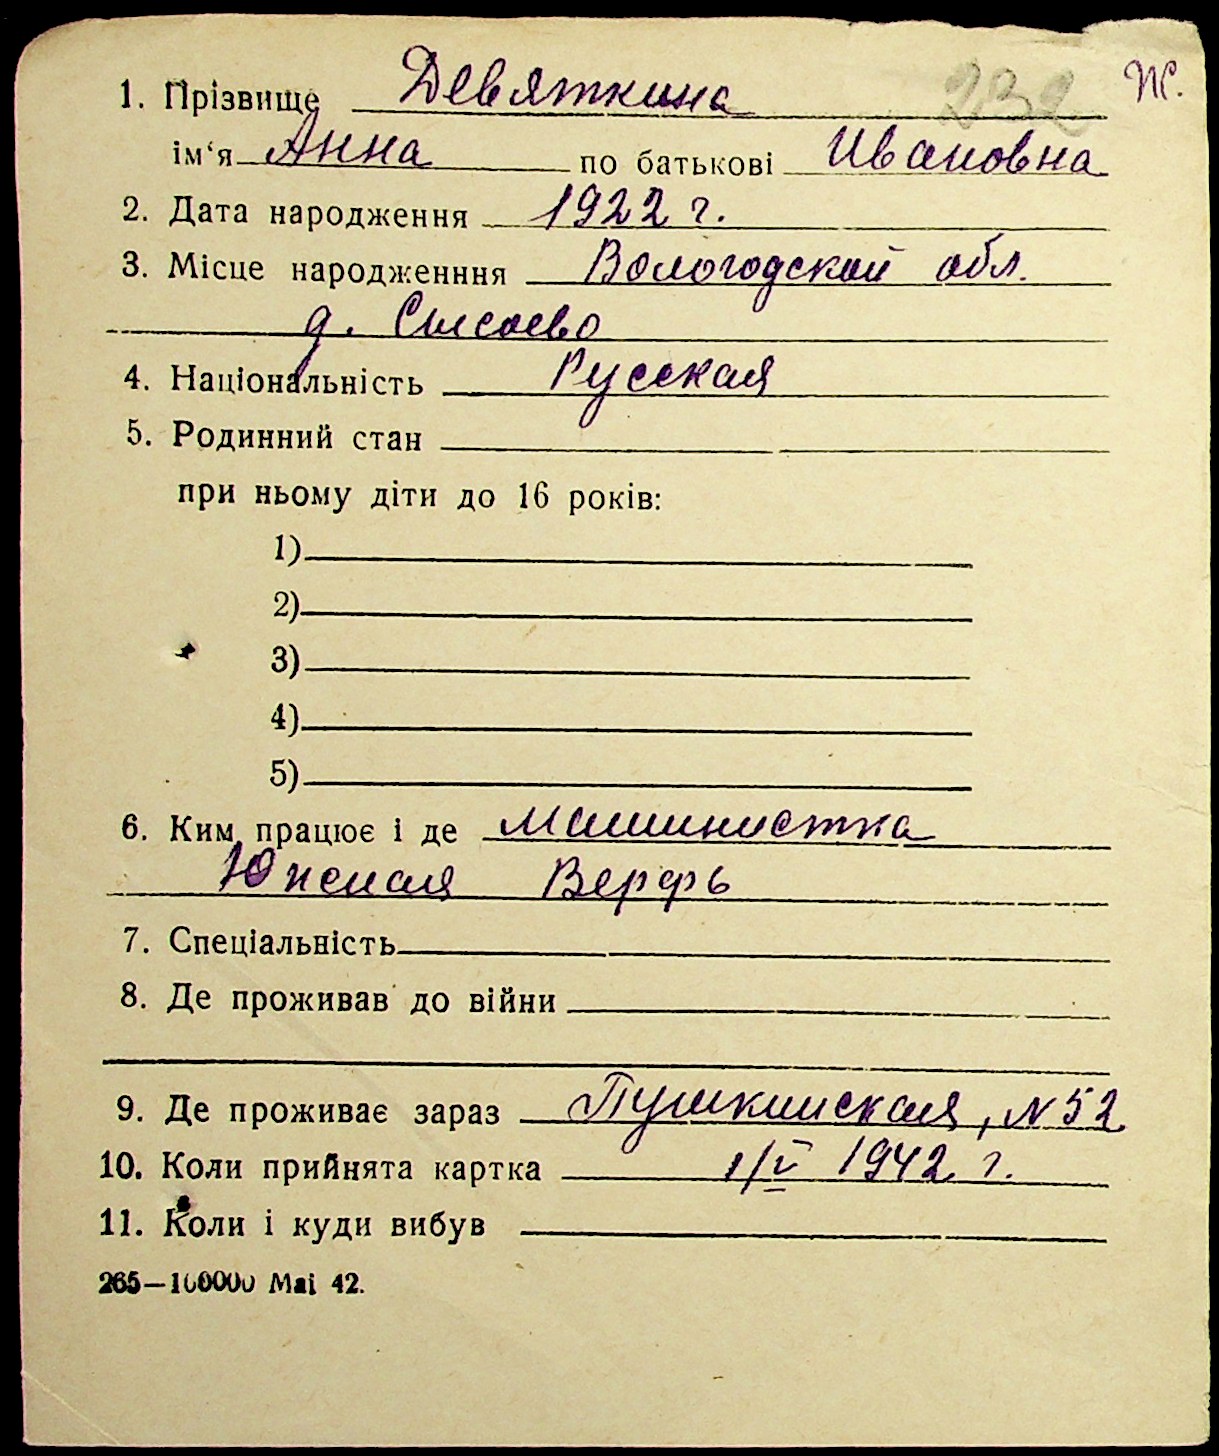 232 Ж.
1. Прізвище Девяткина
ім‘я Анна по батькові Ивановна
2. Дата народження 1922 г.
3. Місце народженння Вологодской обл.
д. Сысоево
4. Національність Русская
5. Родинний стан
при ньому діти до 16 років:
1)
2)
3)
4)
5)
6. Ким працює і де Машинистка
Южная Верфь
7. Спеціальність
8. Де проживав до війни
9. Де проживає зараз Пушкинская, N 52
10. Коли прийнята картка 1/V 1942 г.
11. Коли і куди вибув
265—100000 Маі 42.